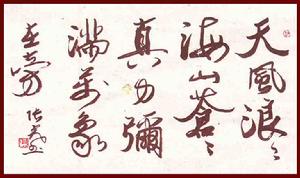 天風浪〻
海山蒼〻
真力彌
滿萬象
在旁